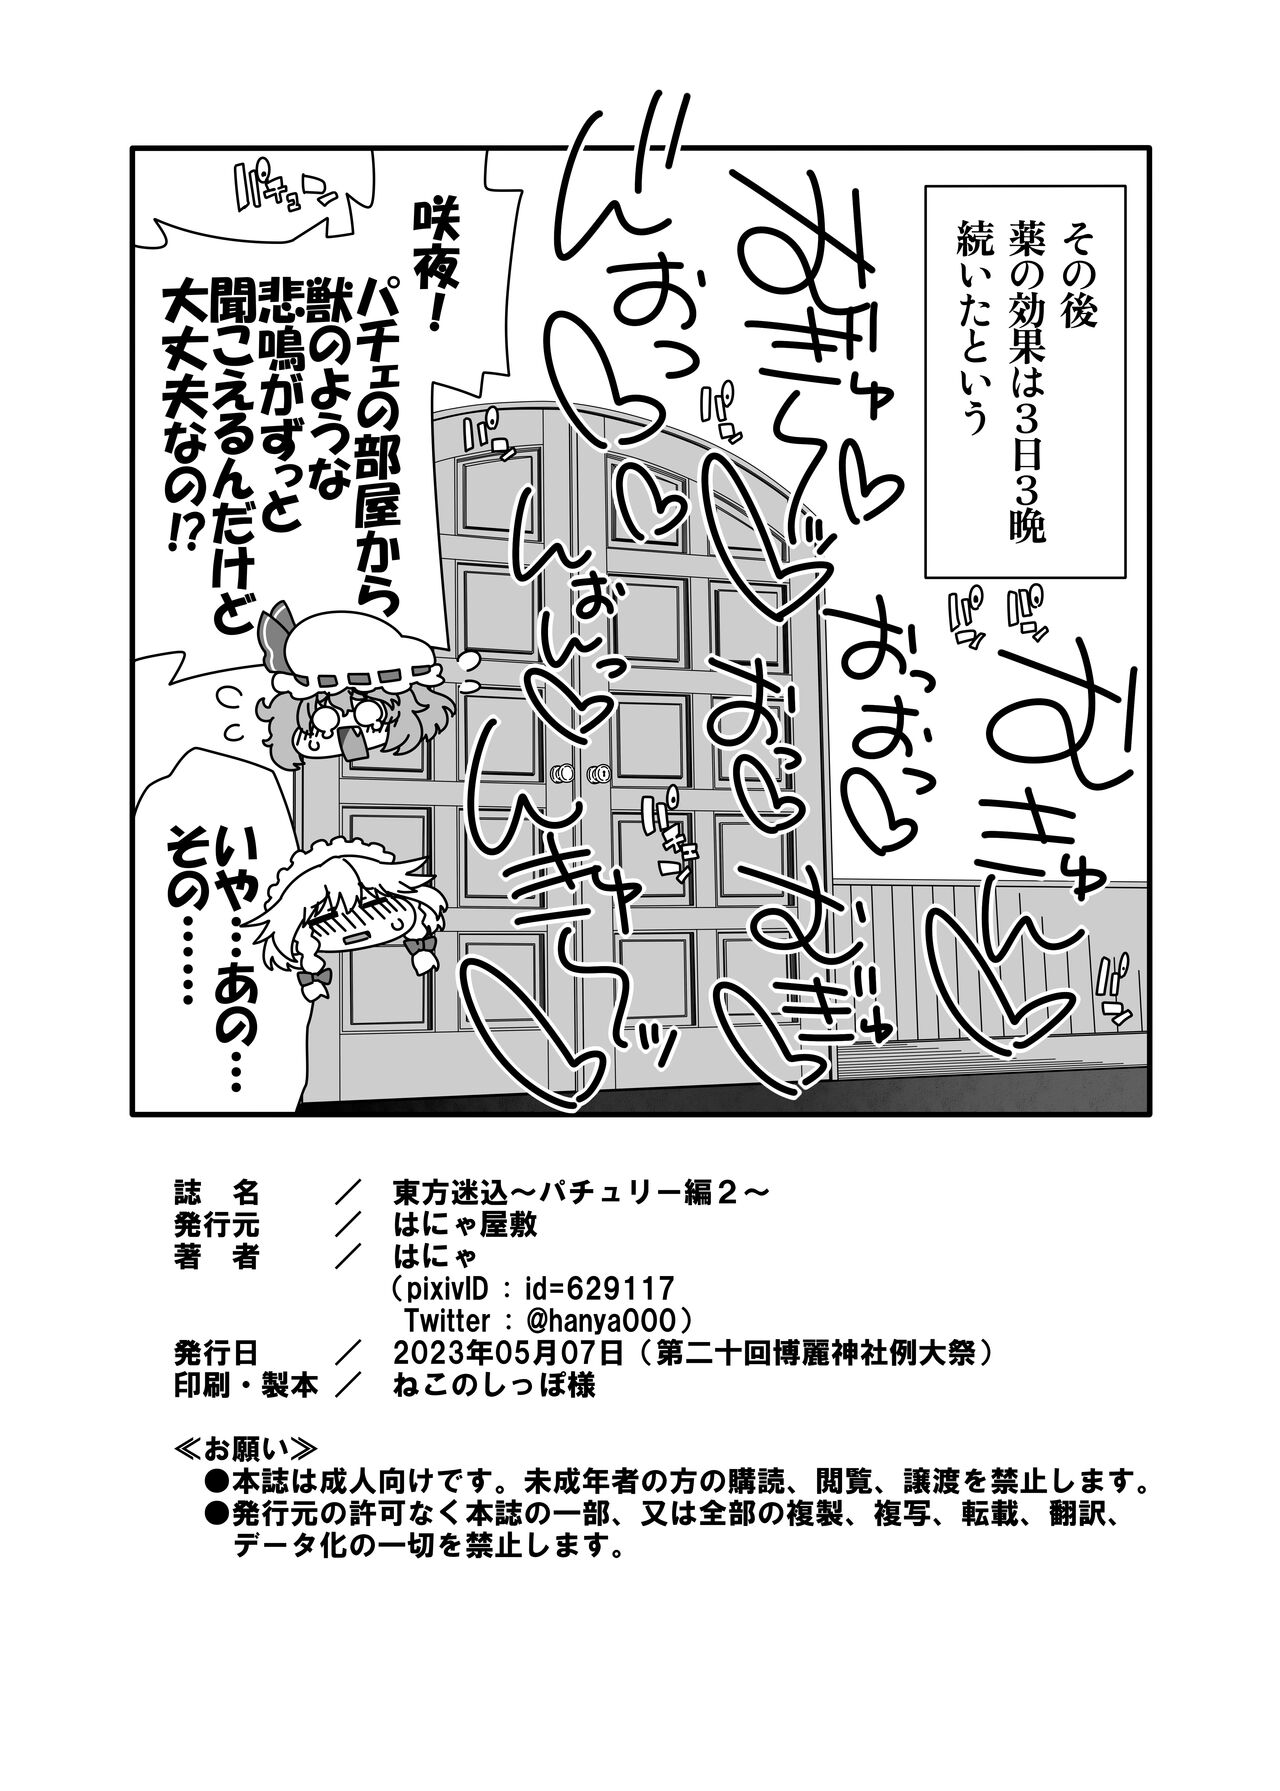 その後
薬の効果は３日３晩
続いたという
なぎゅんッ
んおっ
おっおおっ
なぎゅん
おおっ
なぎゅ
んおんっ
んぎゅ〜ッ
パン
パン
パン
パン
パチュン
パン
パチュン
咲夜！
パチェの部屋から
獣のような
悲鳴がずっと
聞こえるんだけど
大丈夫なの!?
いや…あの…
その………
誌　名　／　東方迷込～パチュリー編２～
発行元　／　はにゃ屋敷
著　者　／　はにゃ
（pixivID : id=629117
Twitter : @hanya000）
発行日　／　2023年05月07日（第二十回博麗神社例大祭）
印刷・製本　／　ねこのしっぽ様
≪お願い≫
●本誌は成人向けです。未成年者の方の購読、閲覧、譲渡を禁止します。
●発行元の許可なく本誌の一部、又は全部の複製、複写、転載、翻訳、
データ化の一切を禁止します。